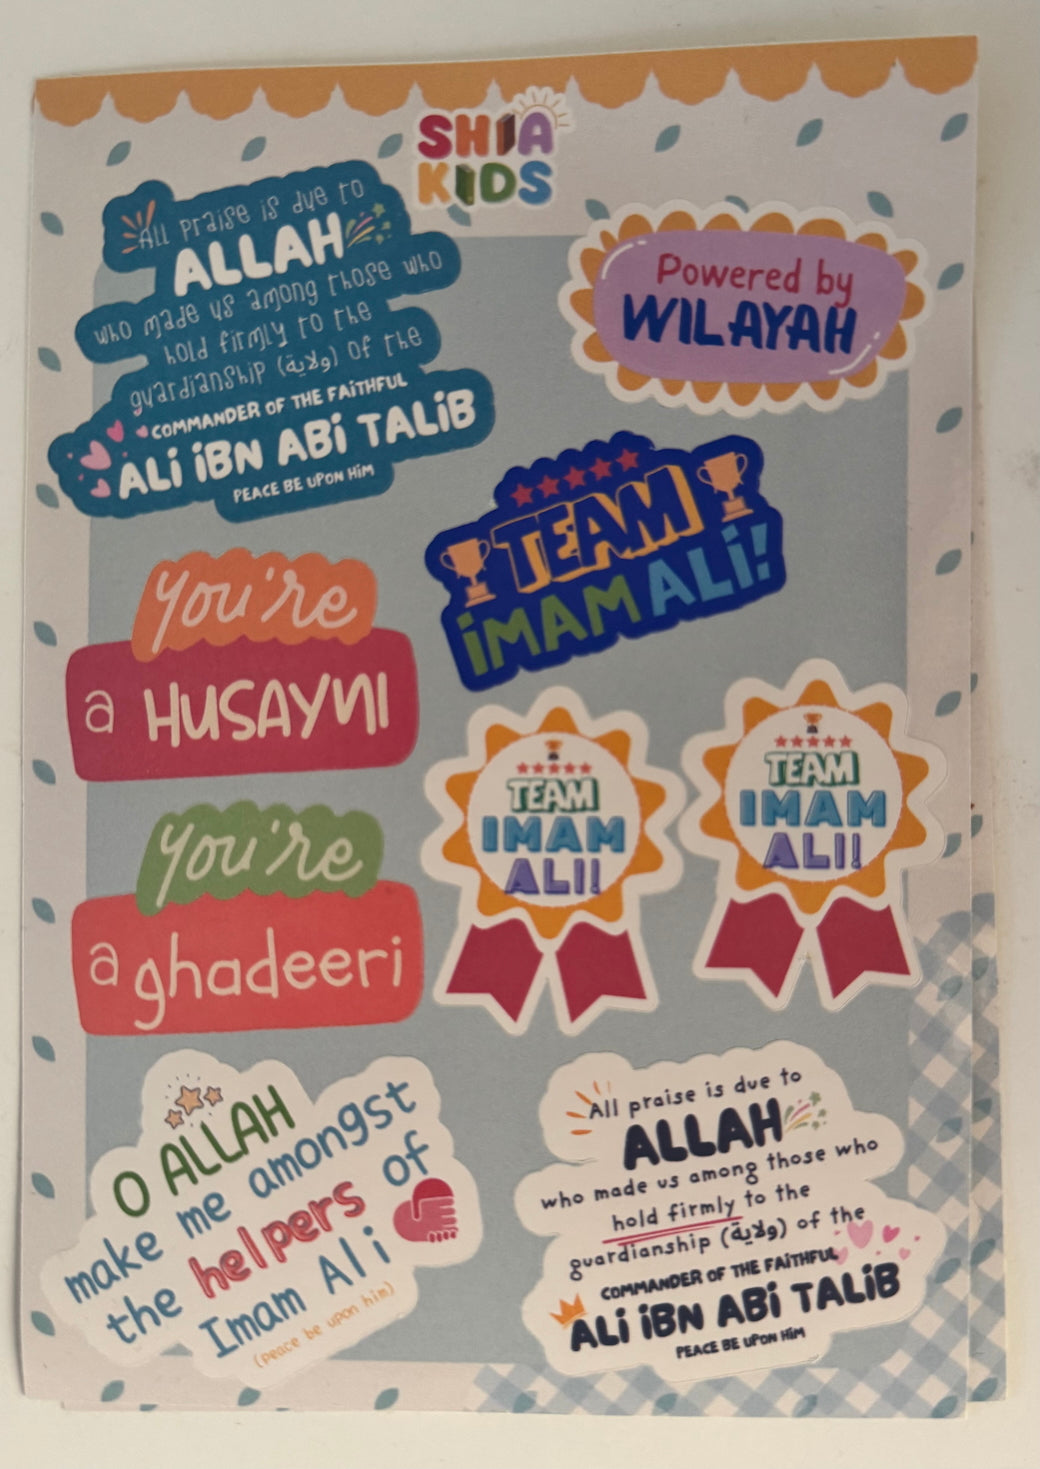 SHIA
KIDS
All praise is due to
ALLAH
who made us among those who
hold firmly to the
guardianship (ولاية) of the
COMMANDER OF THE FAiTHFUL
ALi iBN ABi TALiB
PEACE BE UPON HiM
Powered by
WILAYAH
TEAM
iMAM ALi!
You're
a HUSAYNI
TEAM
IMAM
ALI!
TEAM
IMAM
ALI!
You're
a ghadeeri
O ALLAH
make me amongst
the helpers of
Imam Ali
(peace be upon him)
All praise is due to
ALLAH
who made us among those who
hold firmly to the
guardianship (ولاية) of the
COMMANDER OF THE FAiTHFUL
ALi iBN ABi TALiB
PEACE BE UPON HiM